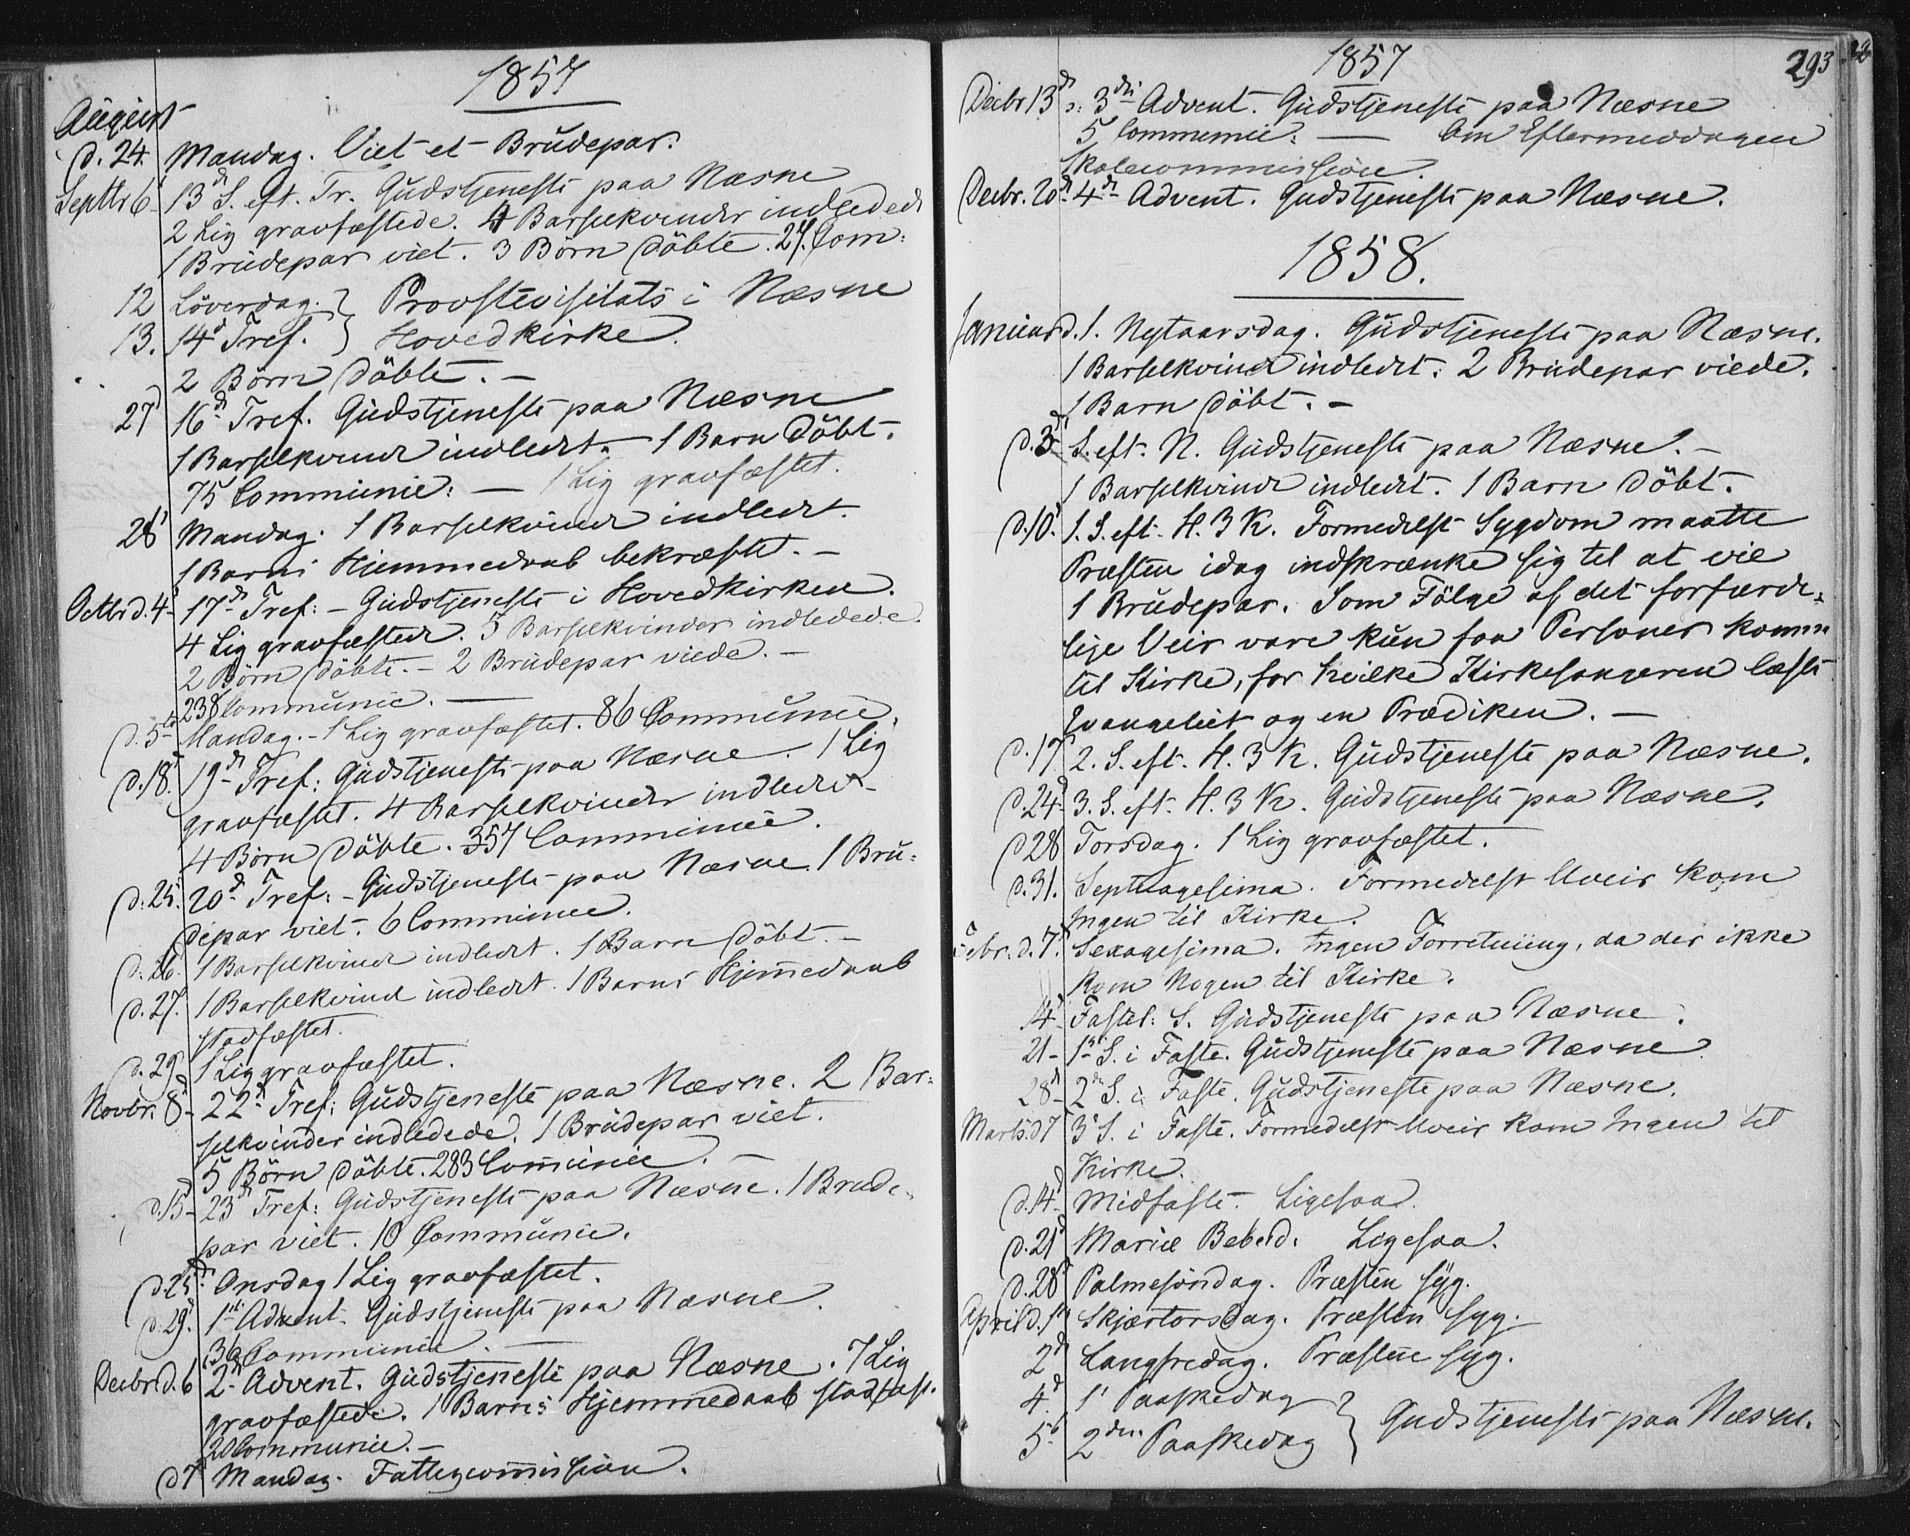 1857
August
d. 24. Mandag. Viet et Brudepar.
Septbr 6 13d S. eft. Tr. Gudstjeneste paa Næsne
2 Lig gravfæstede. 4 Barselkvinder indledede
1 Brudepar viet. 3 Börn döbte. 27. Com:
12 Löverdag. } Provstevisitats i Næsne
13. 14d Tref. } Hovedkirke.
2 Börn döbte. –
27 16d Tref. Gudstjeneste paa Næsne
1 Barselkvinde indledet. – 1 Barn döbt.
75 Communic: — 1 Lig gravfæstet.
28 Mandag. 1 Barselkvinde indledet.
1 Barns Hjemmedaab bekræftet. –
Octbr d. 4 17d Tref: – Gudstjeneste i Hovedkirken.
4 Lig gravfæstede. 5 Barselkvinder indledede.
2 Börn döbte. – 2 Brudepar viede. –
238 Communic. —
d. 5 Mandag. – 1 Lig gravfæstet. 86 Communic.
d. 18. 19d Tref: Gudstjeneste paa Næsne. 1 Lig
gravfæstet. 4 Barselkvinder indledet
4 Börn döbte. 357 Communic.
d. 25. 20d Tref: – Gudstjeneste paa Næsne. 1 Bru:
depar viet. 6 Communic.
d. 26. 1 Barselkvinde indledet. 1 Barn döbt. –
d. 27. 1 Barselkvinde indledet. 1 Barns Hjemedaab
stadfæstet.
d. 29 1 Lig gravfæstet.
Novbr. 8 22d Tref: Gudstjeneste paa Næsne. 2 Bar:
selkvinder indledede. 1 Brudepar viet.
5 Börn döbte. 283 Comunic. –
d. 15 23d Tref: Gudstjeneste paa Næsne. 1 Brude:
par viet. 10 Communic.
d. 25. Onsdag 1 Lig gravfæstet.
d. 29. 1ste Advent. Gudstjeneste paa Næsne.
36 Communic. —
Decbr d. 6 2d Advent. Gudstjeneste paa Næsne. 7 Lig
gravfæstede. 1 Barns Hjemmedaab stadfæst.
20 Communic. –
d 7 Mandag. Fattigcomission.
1857
293
Decbr 13d s: 3die Advent. Gudstjeneste paa Næsne
5 Communic: — Om Eftermiddagen
Skolecommission.
Decbr. 20d 4de Advent. Gudstjeneste paa Næsne.
1858.
Januar d. 1. Nytaarsdag. Gudstjeneste paa Næsne.
1 Barselkvinde indledet. 2 Brudepar viede.
1 Barn döbt. –
d. 3 S. eft. N. Gudstjeneste paa Næsne. –
1 Barselkvinde indledet. 1 Barn döbt.
d. 10. 1. S. eft. H. 3 K. Formedelst Sygdom maatte
Præsten idag indskrænke sig til at vie
1 Brudepar. Som Fölge af det forfærde:
lige Veir vare kun faa Personer komne
til Kirke, for hvilke Kirkesangeren læste
Evangeliet og en Prædiken. —
d. 17 2. S. eft. H. 3 K. Gudstjeneste paa Næsne.
d. 24 3. S. eft. H. 3 K. Gudstjeneste paa Næsne.
d 28 Torsdag. 1 Lig gravfæstet.
d. 31. Septuagesima. Formedelst Uveir kom
Ingen til Kirke.
Febr. d. 7. Sexagesima. Ingen Forretning, da der ikke
kom Nogen til Kirke.
14 Fastel: S. Gudstjeneste paa Næsne.
21 – 1ste S. i Faste. Gudstjeneste paa Næsne.
28 – 2d S. i Faste. Gudstjeneste paa Næsne.
Marts d 7 3d S. i Faste. Formedelst Uveir kom Ingen til
Kirke.
d. 14 Midfaste. Ligesaa.
d. 21 Mariæ Bebud. Ligesaa.
d. 28 Palmesöndag. Præsten syg.
April d. 1 Skjærtorsdag. Præsten syg.
2d Langfredag. Præsten syg.
4d 1 Paaskedag } Gudstjeneste paa Næsne.
5 2den Paaskedag }